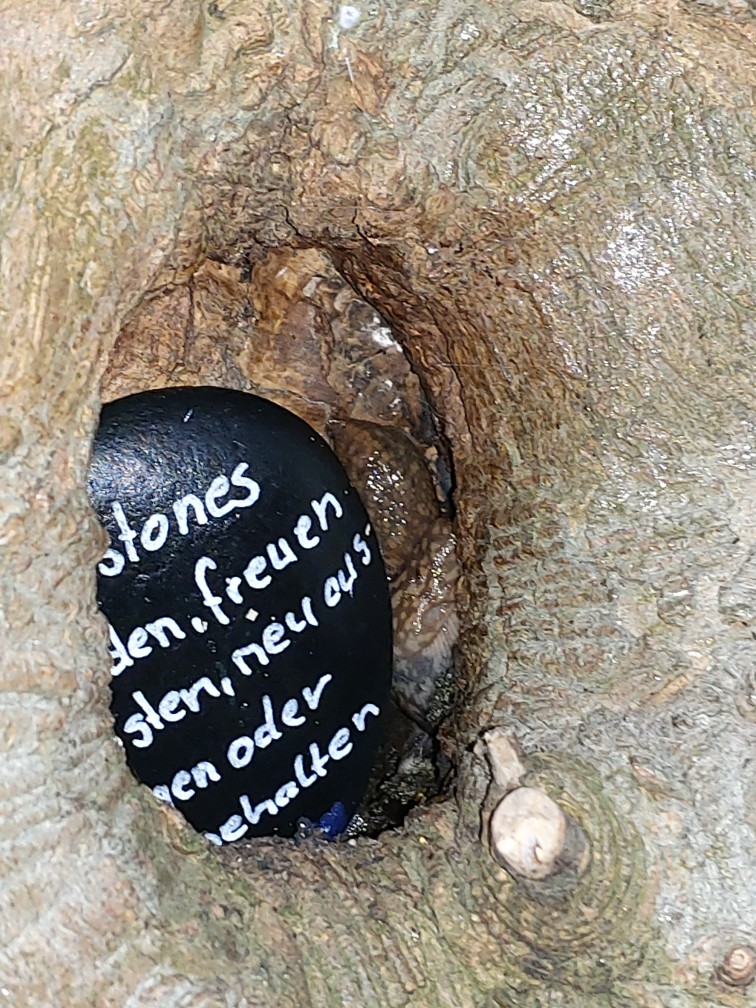 stones
den, freuen
sten, neu aus-
gen oder
behalten